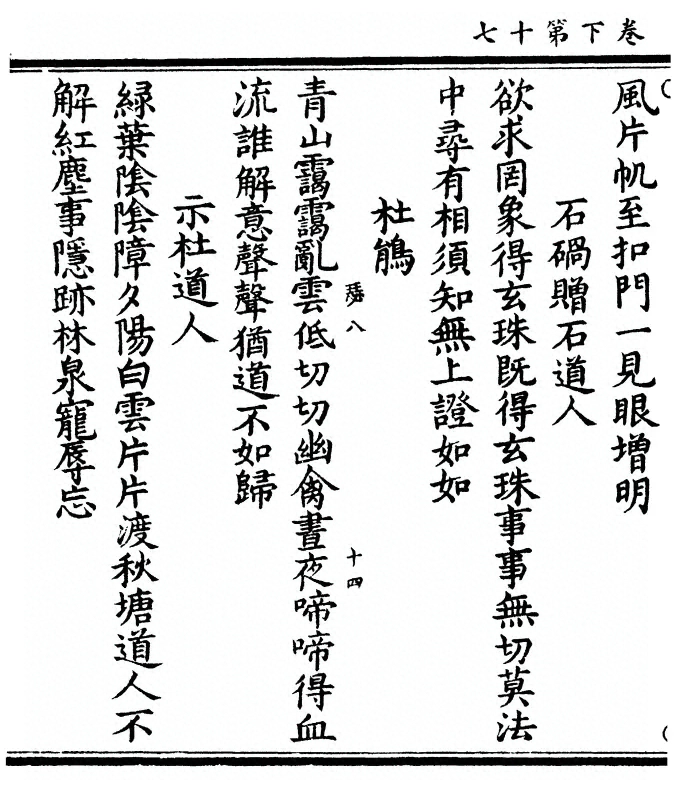 卷下第十七
風片帆至扣門一見眼增明
石碢贈石道人
欲求罔象得玄珠既得玄珠事事無切莫法
中尋有相須知無上證如如
杜鵑
青山靄靄亂雲低切切幽禽晝夜啼啼得血
八
十四
流誰解意聲聲猶道不如歸
示杜道人
緑葉陰陰障夕陽白雲片片渡秋塘道人不
解紅塵事隱跡林泉寵辱忘